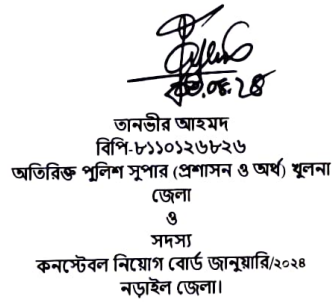 তানভীর আহমদ
বিপি-৮১১০১২৬৮২৬
অতিরিক্ত পুলিশ সুপার (প্রশাসন ও অর্থ) খুলনা
জেলা
ও
সদস্য
কনস্টেবল নিয়োগ বোর্ড জানুয়ারি/২০২৪
নড়াইল জেলা।